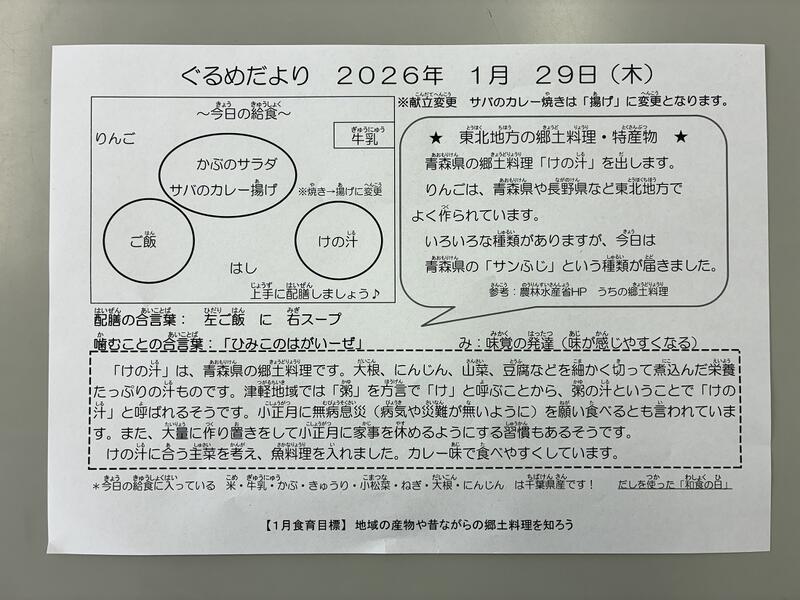 ぐるめだより　２０２６年　１月　２９日（木）
～今日の給食～
りんご
牛乳
かぶのサラダ
サバのカレー揚げ
※焼き→揚げに変更
ご飯
けの汁
はし
上手に配膳しましょう♪
※献立変更　サバのカレー焼きは「揚げ」に変更となります。
★　東北地方の郷土料理・特産物　★
青森県の郷土料理「けの汁」を出します。
りんごは、青森県や長野県など東北地方で
よく作られています。
いろいろな種類がありますが、今日は
青森県の「サンふじ」という種類が届きました。
参考：農林水産省HP　うちの郷土料理
配膳の合言葉：　左ご飯　に　右スープ
噛むことの合言葉：「ひみこのはがいーぜ」　み：味覚の発達（味が感じやすくなる）
「けの汁」は、青森県の郷土料理です。大根、にんじん、山菜、豆腐などを細かく切って煮込んだ栄養
たっぷりの汁ものです。津軽地域では「粥」を方言で「け」と呼ぶことから、粥の汁ということで「けの
汁」と呼ばれるそうです。小正月に無病息災（病気や災難が無いように）を願い食べるとも言われていま
す。また、大量に作り置きをして小正月に家事を休めるようにする習慣もあるそうです。
けの汁に合う主菜を考え、魚料理を入れました。カレー味で食べやすくしています。
＊今日の給食に入っている　米・牛乳・かぶ・きゅうり・小松菜・ねぎ・大根・にんじん　は千葉県産です！　だしを使った「和食の日」
【１月食育目標】 地域の産物や昔ながらの郷土料理を知ろう